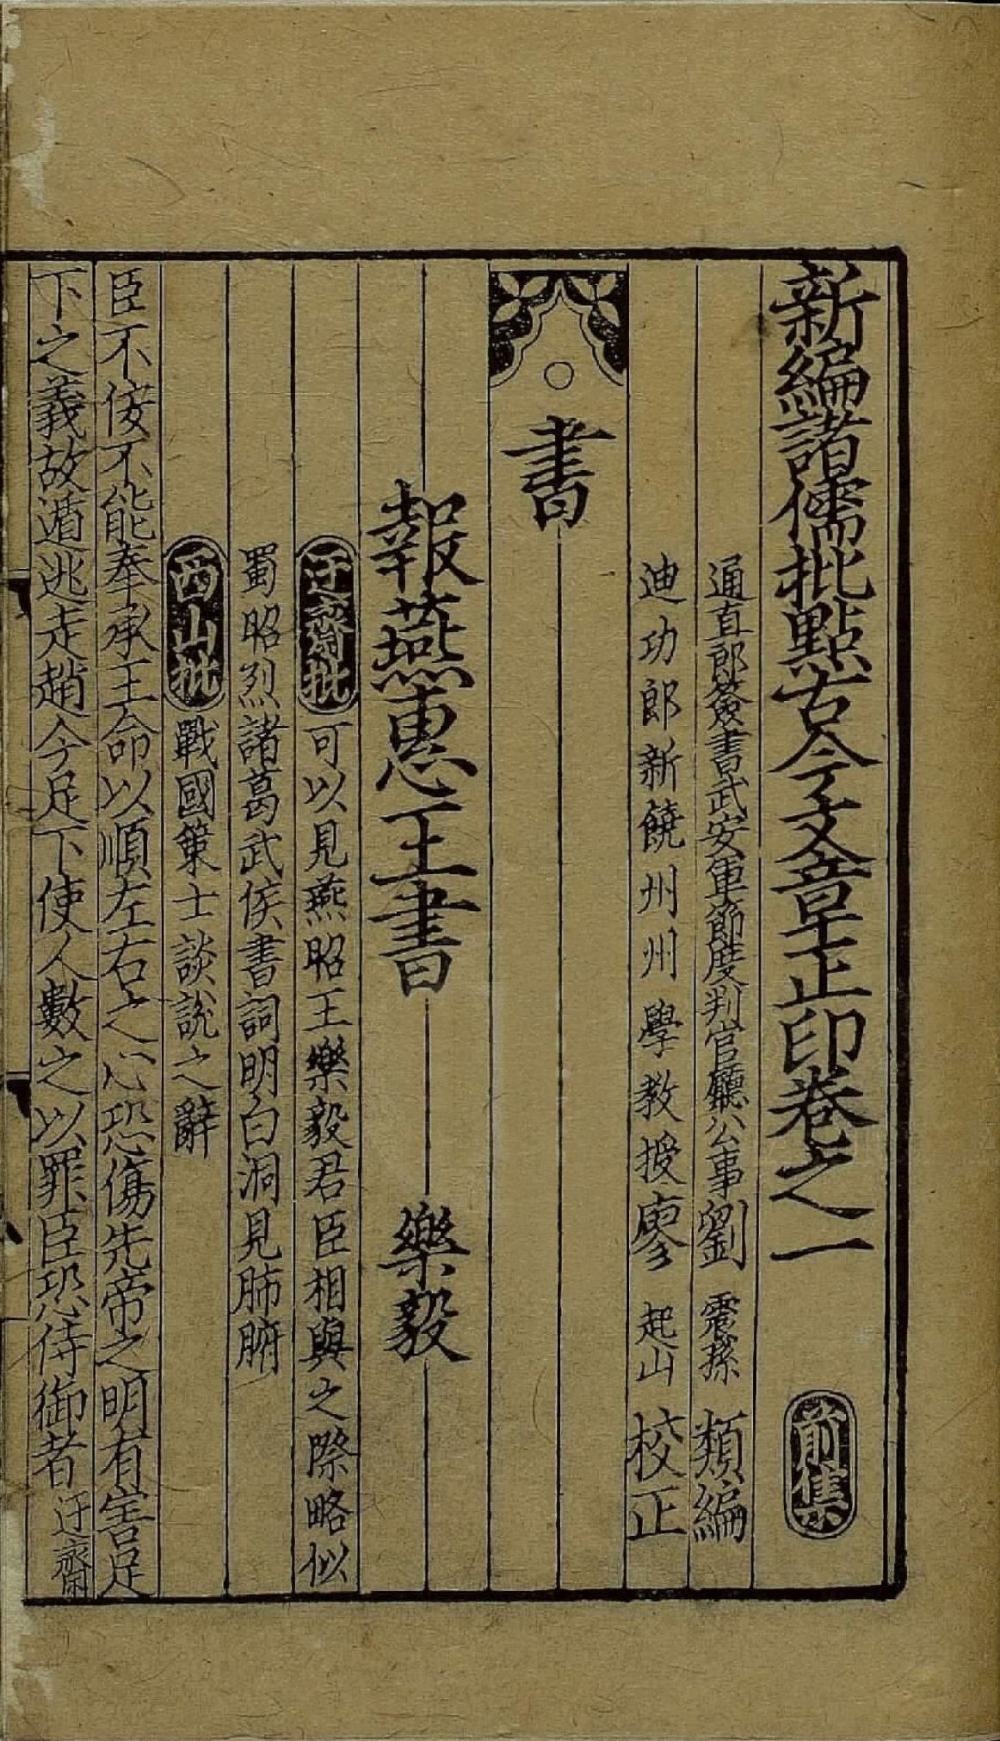 新編諸儒批點古今文章正印卷之一 前集
通直郎簽書武安軍節度判官廳公事劉 震孫 類編
迪功郎新饒州州學教授廖 起山 校正
書
報燕惠王書 樂毅
迂齋批 可以見燕昭王樂毅君臣相與之際略似
蜀昭烈諸葛武侯書詞明白洞見肺腑
西山批 戰國策士談說之辭
臣不佞不能奉承王命以順左右之心恐傷先帝之明有害足
下之義故遁逃走趙今足下使人數之以罪臣恐侍御者 迂齋